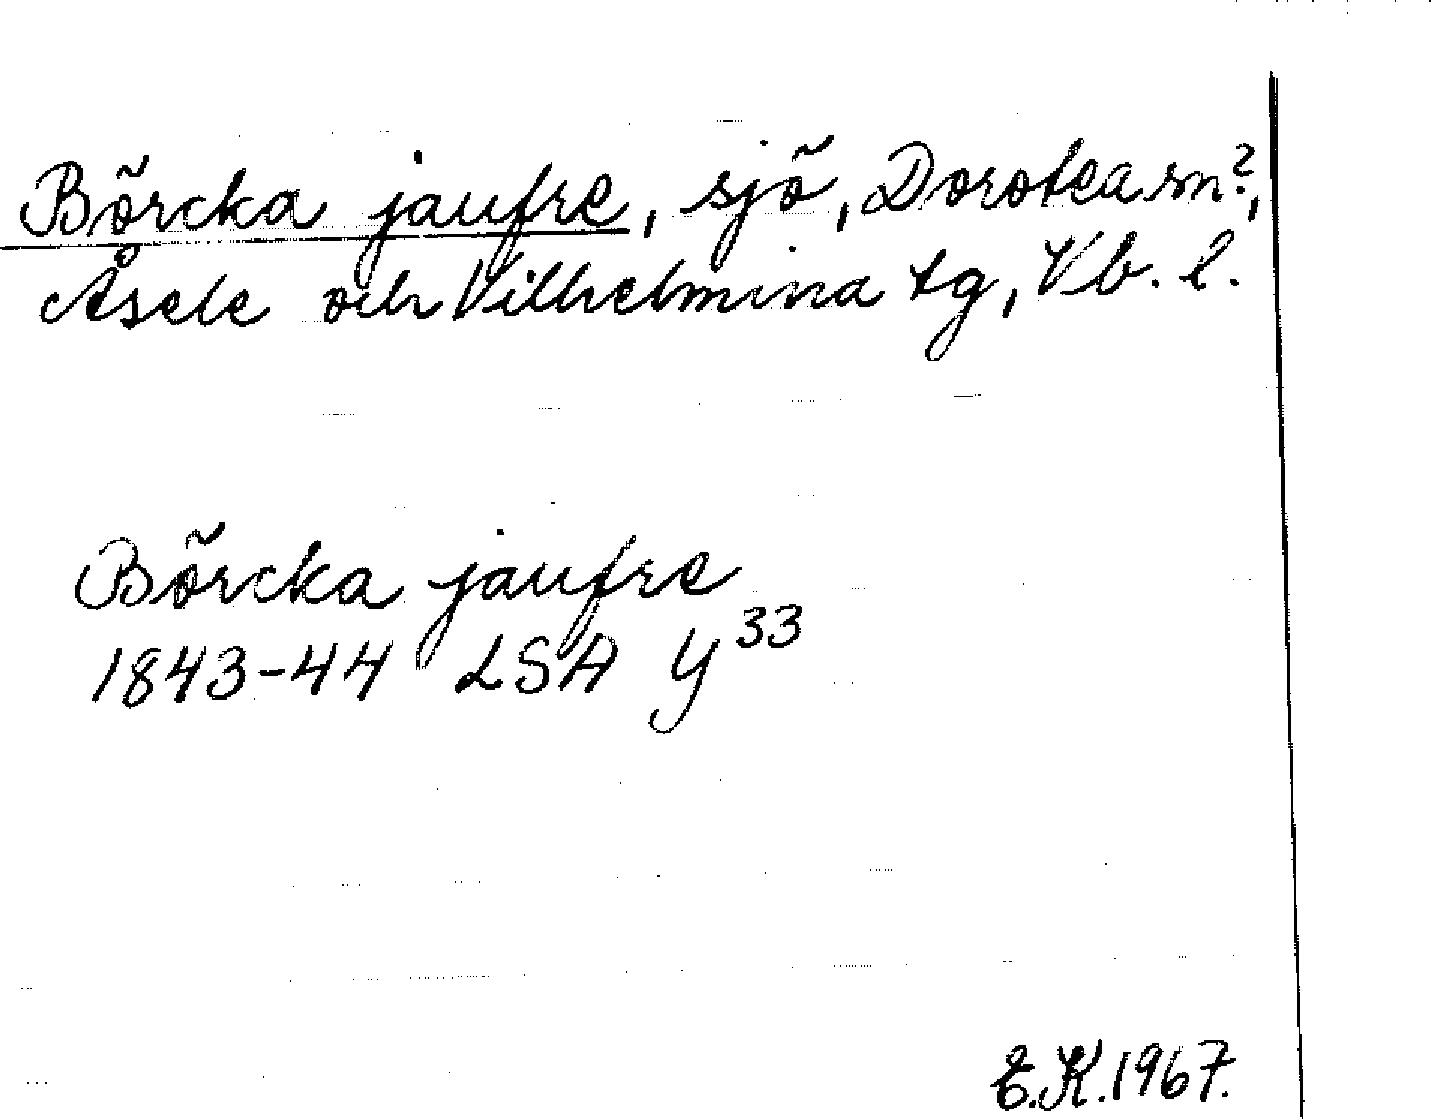 Börcka jaufre, sjö, Dorotea sn?,
Åsele och Vilhelmina tg, Vb. l.
Börcka jaufre
1843-44 LSA Y 33
E.K. 1967.